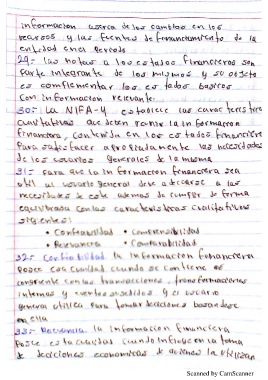 informacion acerca de los cambios en los
recursos y las fuentes de financiamiento de la
entidad en el periodo
29.- las notas a los estados financieros son
parte integrante de los mismos y su objeto
es complementar los estados basicos
con informacion relevante.
30.- la NIFA-4 establece las caracteristica
cualitativas que deben reunir la informacion
financiera, contenida en los estados financieros
Para satisfacer apropiadamente las necesidades
de los usuarios generales de la misma
31.- para que la informacion financiera sea
util al usuario general debe adecuarse a las
necesidades de este ademas de cumplir de forma
equilibrada con las caracteristicas cualitativas
siguientes:
• Confiabilidad • Comprensibilidad
• Relevancia • Comparabilidad
32.- Confiabilidad la informacion financiera
posee esa cualidad cuando su contiene es
congruente con las transacciones, transformaciones
internas y eventos sucedidos y el usuario
general utiliza para tomar decisiones basandose
en ella
33.- Relevancia. la informacion financiera
posee esta cualidad cuando influye en la toma
de decisiones economicas de quienes la utilizan
Scanned by CamScanner